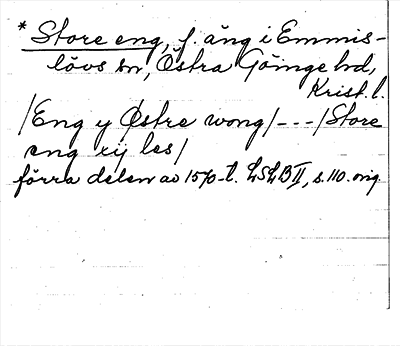 * Store eng, f. äng i Emmis-
lövs sn, Östra Göinge hd,
Krist. l.
/Eng y Østre wong/ - - - /Store
eng xij les/
förra delen av 1570-t. LSLB II, s. 110. orig